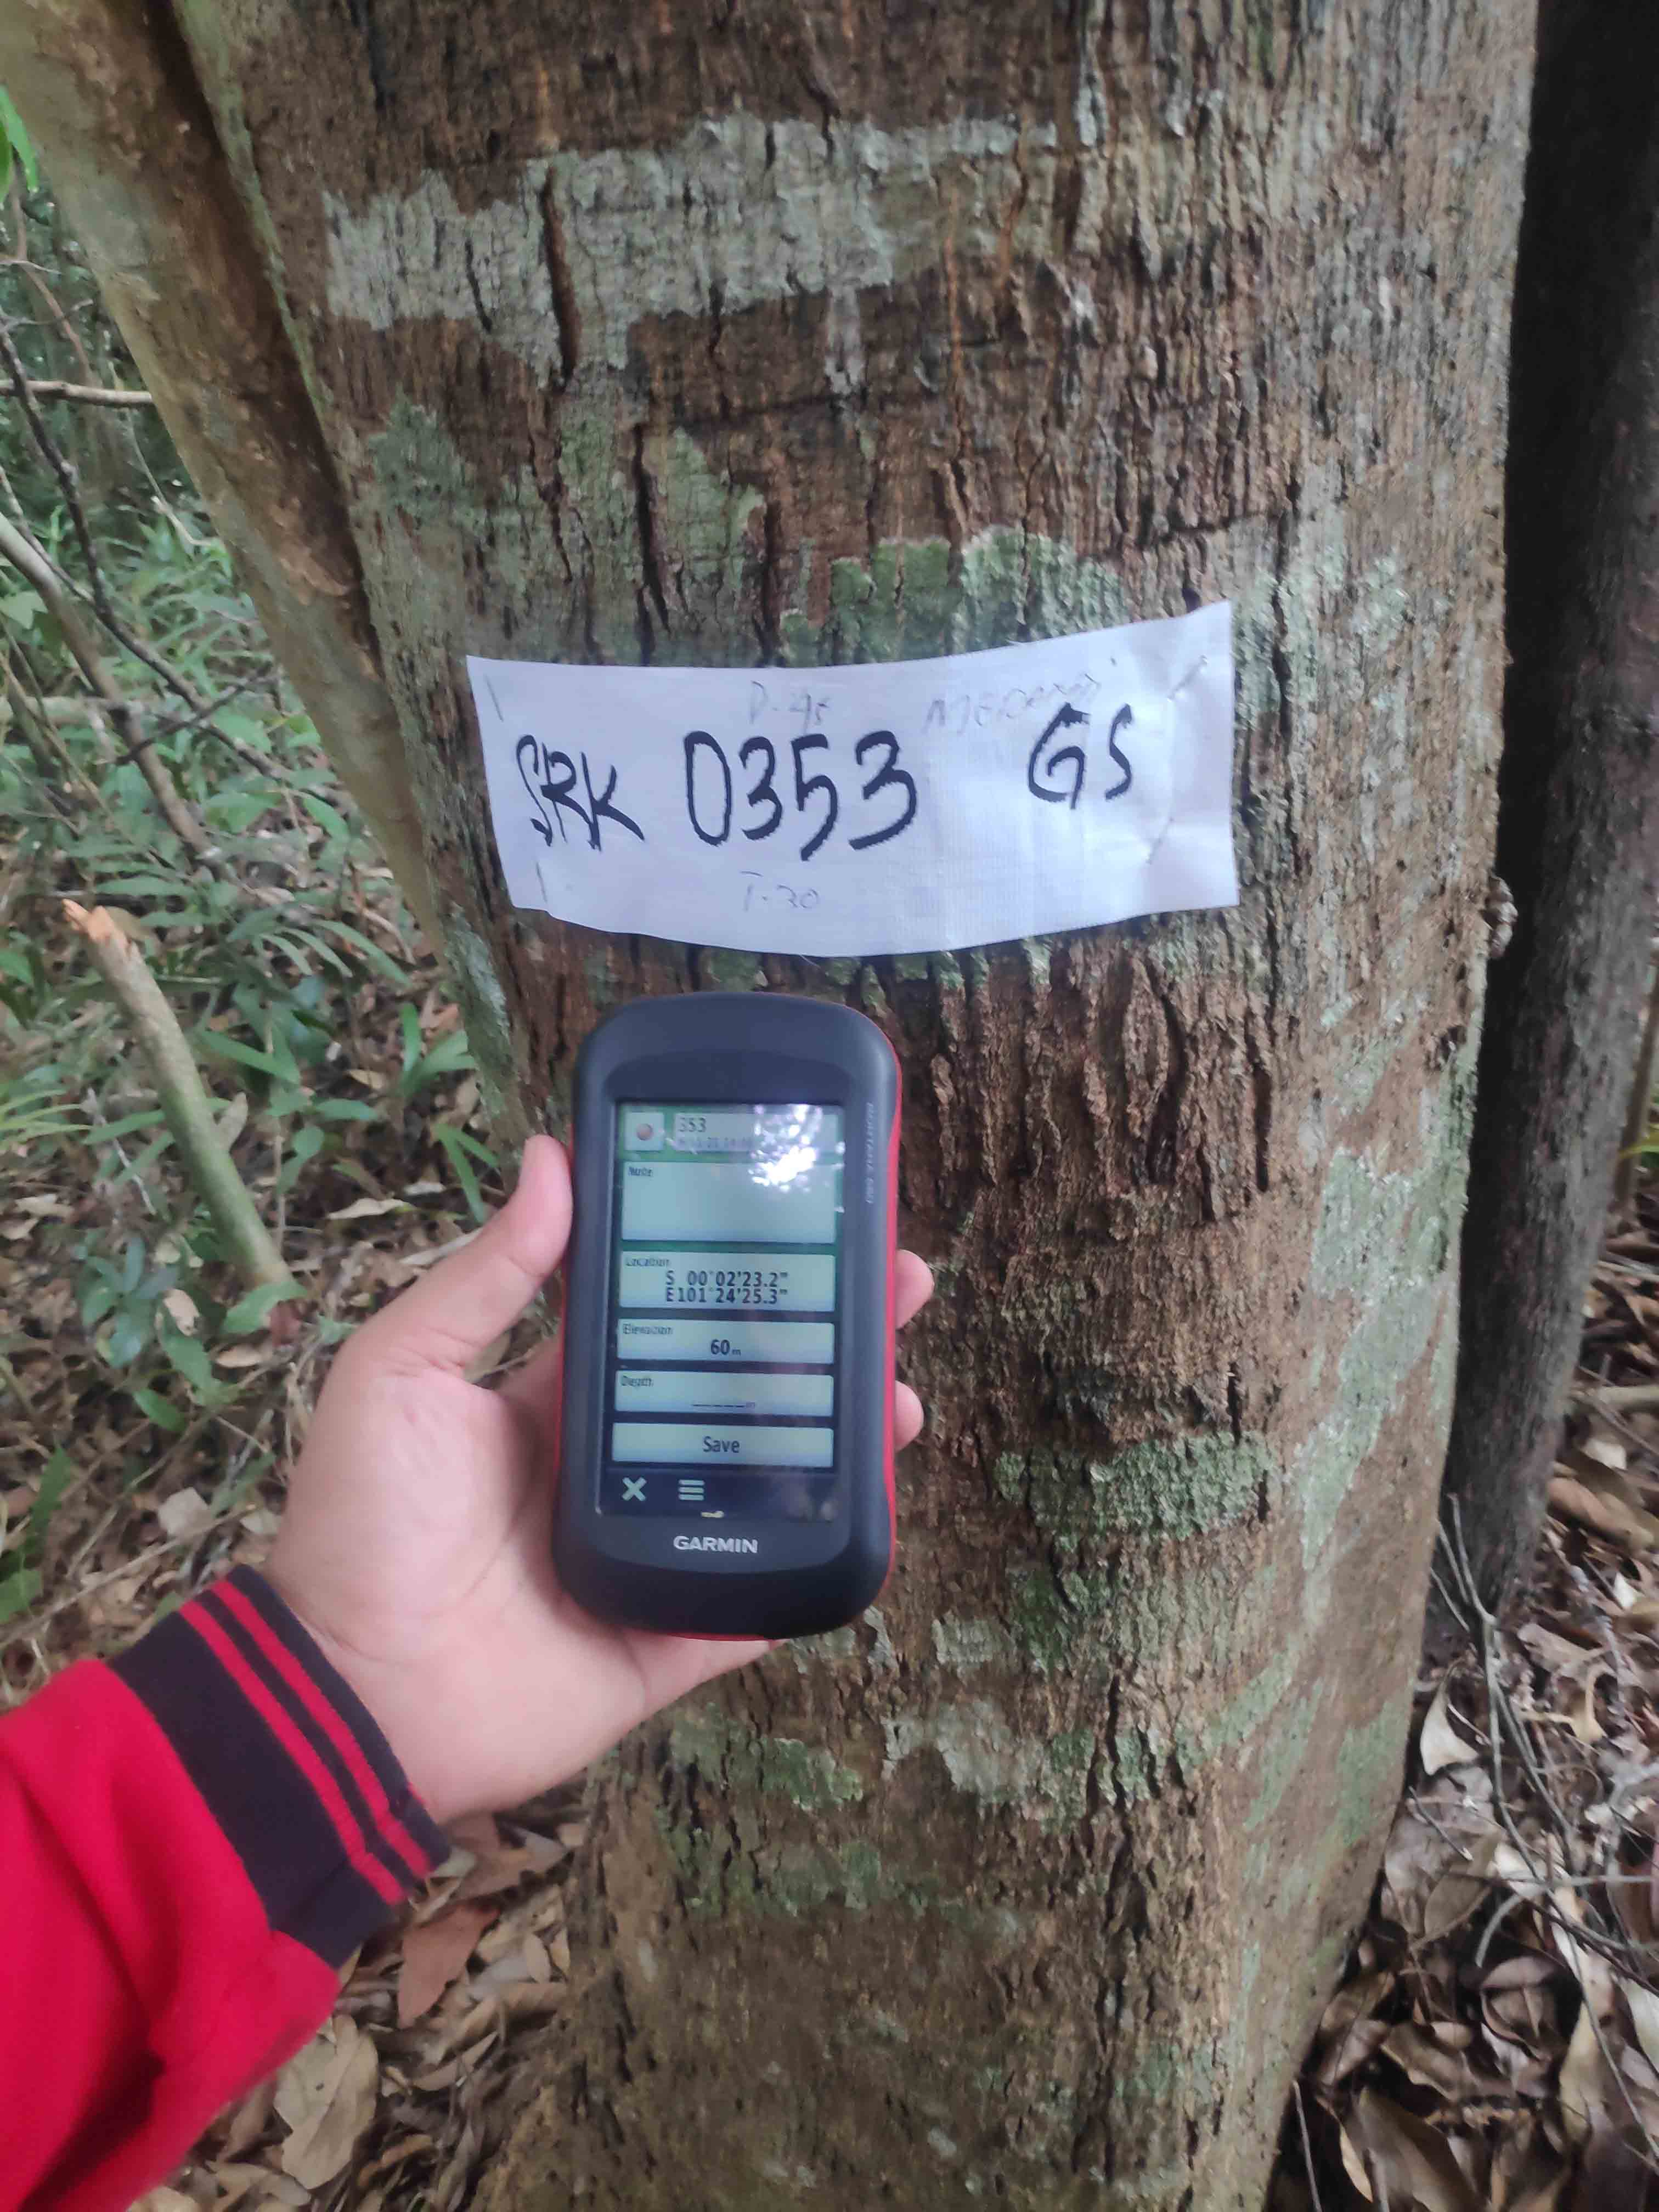 SRK 0353 GS
T-30
353
Note
Location
S 00°02'23.2"
E101°24'25.3"
Elevation
60m
Depth
____m
Save
GARMIN